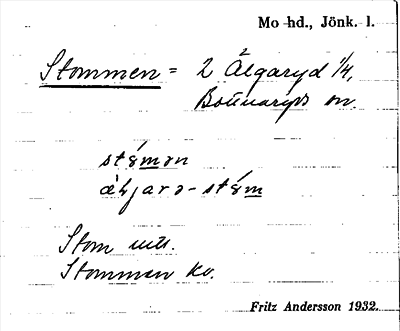 Mo hd., Jönk. l.
Stommen = 2 Älgaryd 1/4,
Bottnaryds sn.
stómən
Stom utt.
Stommen ko.
Fritz Andersson 1932.